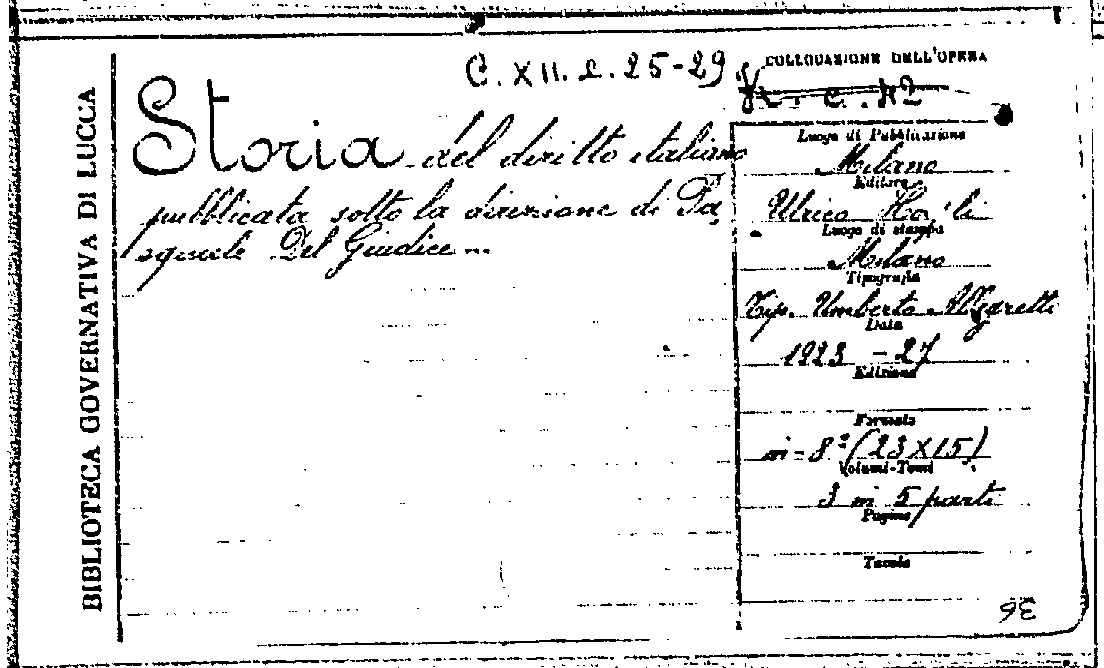 BIBLIOTECA GOVERNATIVA DI LUCCA
C. XII. 2. 25-29
Storia del diritto italiano
pubblicata sotto la direzione di Pa,
squale Del Giudice...
COLLOCAZIONE DELL'OPERA
Luogo di Pubblicazione
Milano
Editore
Ulrico
Luogo di stampa
Milano
Tipografia
Tip. Umberto Allegretti
Data
1923-27
Edizione
Formato
in-8° (23X15)
Volumi-Tomi
3 in 5 parti
Pagine
Tavole